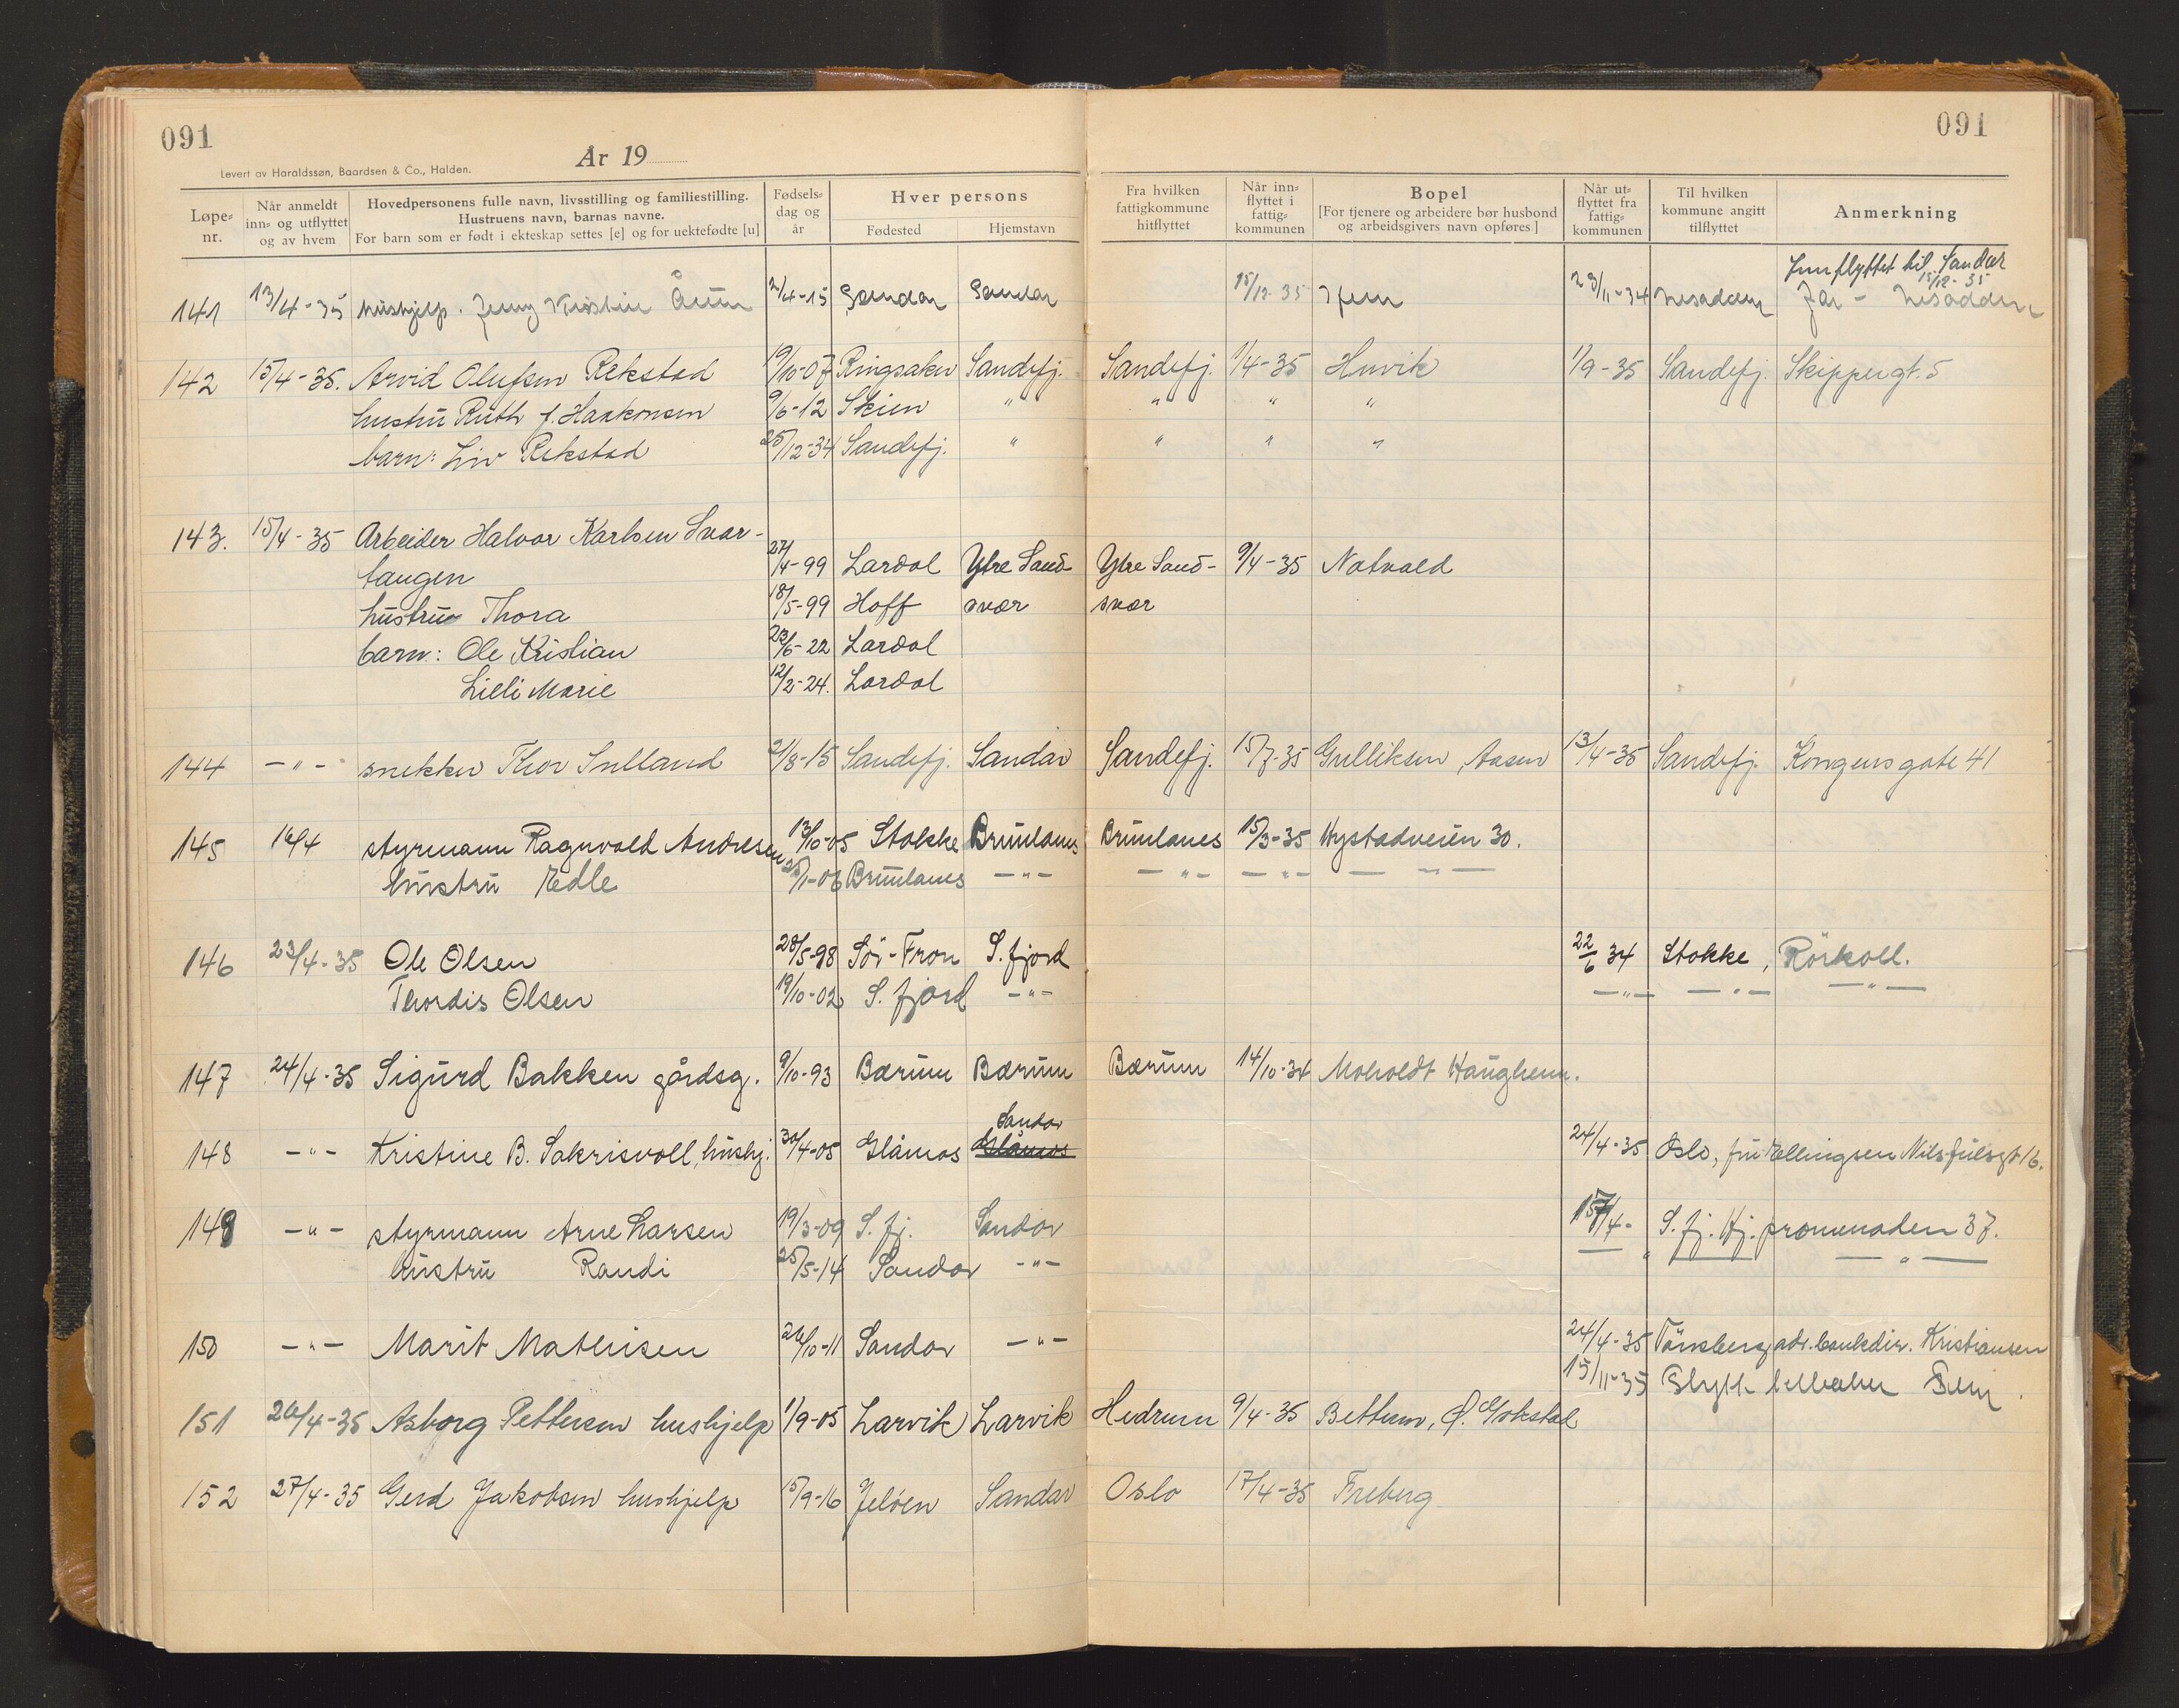 091
091
År 19
Levert av Haraldssøn, Baardsen & Co., Halden.
Løpe-nr. Når anmeldt inn- og utflyttet og av hvem Hovedpersonens fulle navn, livsstilling og familiestilling. Hustruens navn, barnas navne. For barn som er født i ekteskap settes [e] og for uektefødte [u] Fødsels-dag og år Hver persons Fødested Hjemstavn Fra hvilken fattigkommune hitflyttet Når inn-flyttet i fattig-kommunen Bopel [For tjenere og arbeidere bør husbond og arbeidsgivers navn opføres] Når ut-flyttet fra fattig-kommunen Til hvilken kommune angitt tilflyttet Anmerkning
Innflyttet til Sandar
15/12-35
141 13/4-35 hushjelp. Jenny Kristine 2/4-15 Sandar Sandar 15/12-35 Hjem 23/11-34 Nesodden Nesodden
142 15/4-35. Arvid Olufsen Rekstad 19/10-07 Ringsaker Sandefj. Sandefj. 1/4-35 Huvik 1/9-35 Sandefj. Skippergt. 5
hustru Ruth f. Haakonsen 9/6-12 Skien " " " "
barn: Liv Rekstad 25/12-34 Sandefj. " " " "
143. 15/4-35 Arbeider Halvor Karlsen Svar-
tangen 27/4-99 Lardal Ytre Sand- Ytre Sand- 9/4-35 Natvald
hustru Thora 18/5-99 Hoff svær svær
barn: Ole Kristian 23/6-22 Lardal
Lilli Marie 12/2-24. Lardal
144 -"- snekker Thor Sulland 21/8-15 Sandefj. Sandar Sandefj. 15/7-35 Gulliksen, Aasen 13/4-35 Sandefj. Kongensgate 41
145 16/4 styrmann Ragnvald Andresen 13/10-05 Stokke Brunlanes Brunlanes 15/3-35 Nystadveien 30.
hustru Edle Brunlanes -"- -"- -"- -"-
146 23/4-35 Ole Olsen 28/5-98 Sör-Fron S.fjord 22/6 34 Stokke, Rörkoll.
Thordis Olsen 19/10-02 S.fjord -"- -"- -"- -"-
147 24/4-35 Sigurd Bakken gårdsg. 9/10-93 Bærum Bærum Bærum 14/10-34 Moholdt Haughem.
Sandar
148 -"- Kristine B. Sakrisvoll, hushj. 30/4-05 Glåmos Glåmos 24/4-35 Oslo, fru Ellingsen Nils Juelsgt 16.
149 -"- styrmann Arne Larsen 19/3-09 S.fj. Sandar 15/4- S.fj. Hj. promenaden 37.
hustru Randi 25/5-14 Sandar -"- -"- -"-
150 -"- Marit Mathisen 26/10-11 Sandar -"- 24/4-35 Tönsberg adr. bankdir. Kristiansen
15/11-35 Flytt tilbake Sem.
151 26/4-35 Asborg Pettersen hushjelp 1/9-05 Larvik Larvik Hedrum 9/4-35 Bettum, Ø. Gokstad
152 27/4-35 Gerd Jakobsen hushjelp 15/9-16 Jelöen Sandar Oslo 17/4-35 Freberg